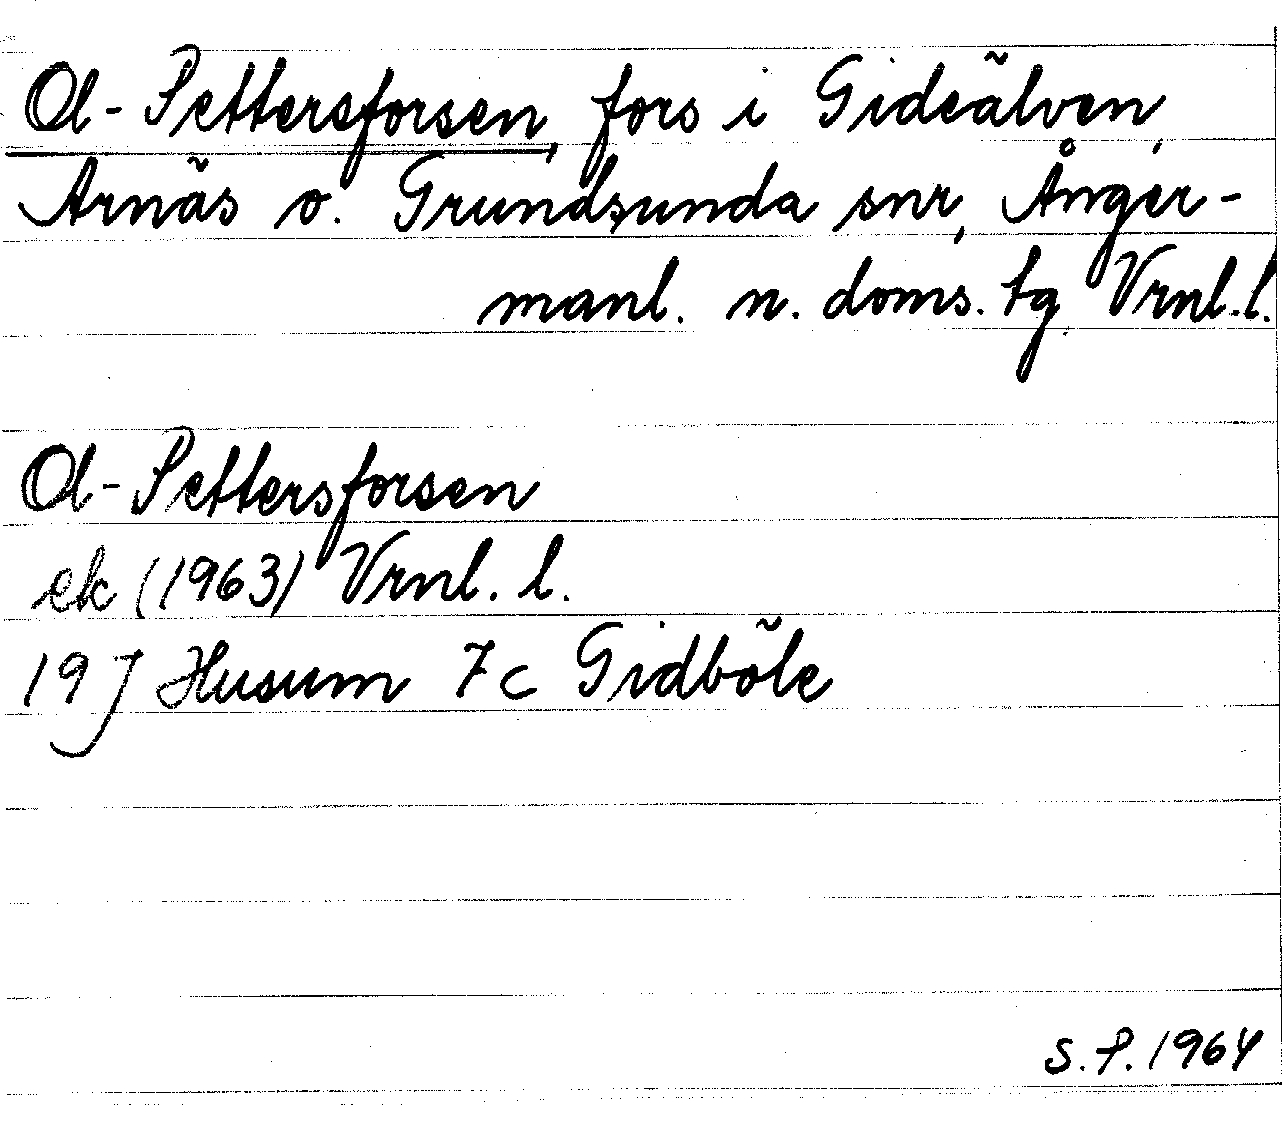 Ol-Pettersforsen, fors i Gideälven,
Arnäs o. Grundsunda snr, Ånger-
manl. n. doms. tg Vrnl.l.
Ol-Pettersforsen
ek (1963) Vrnl. l.
19 J Husum 7c Gidböle
S.P. 1964